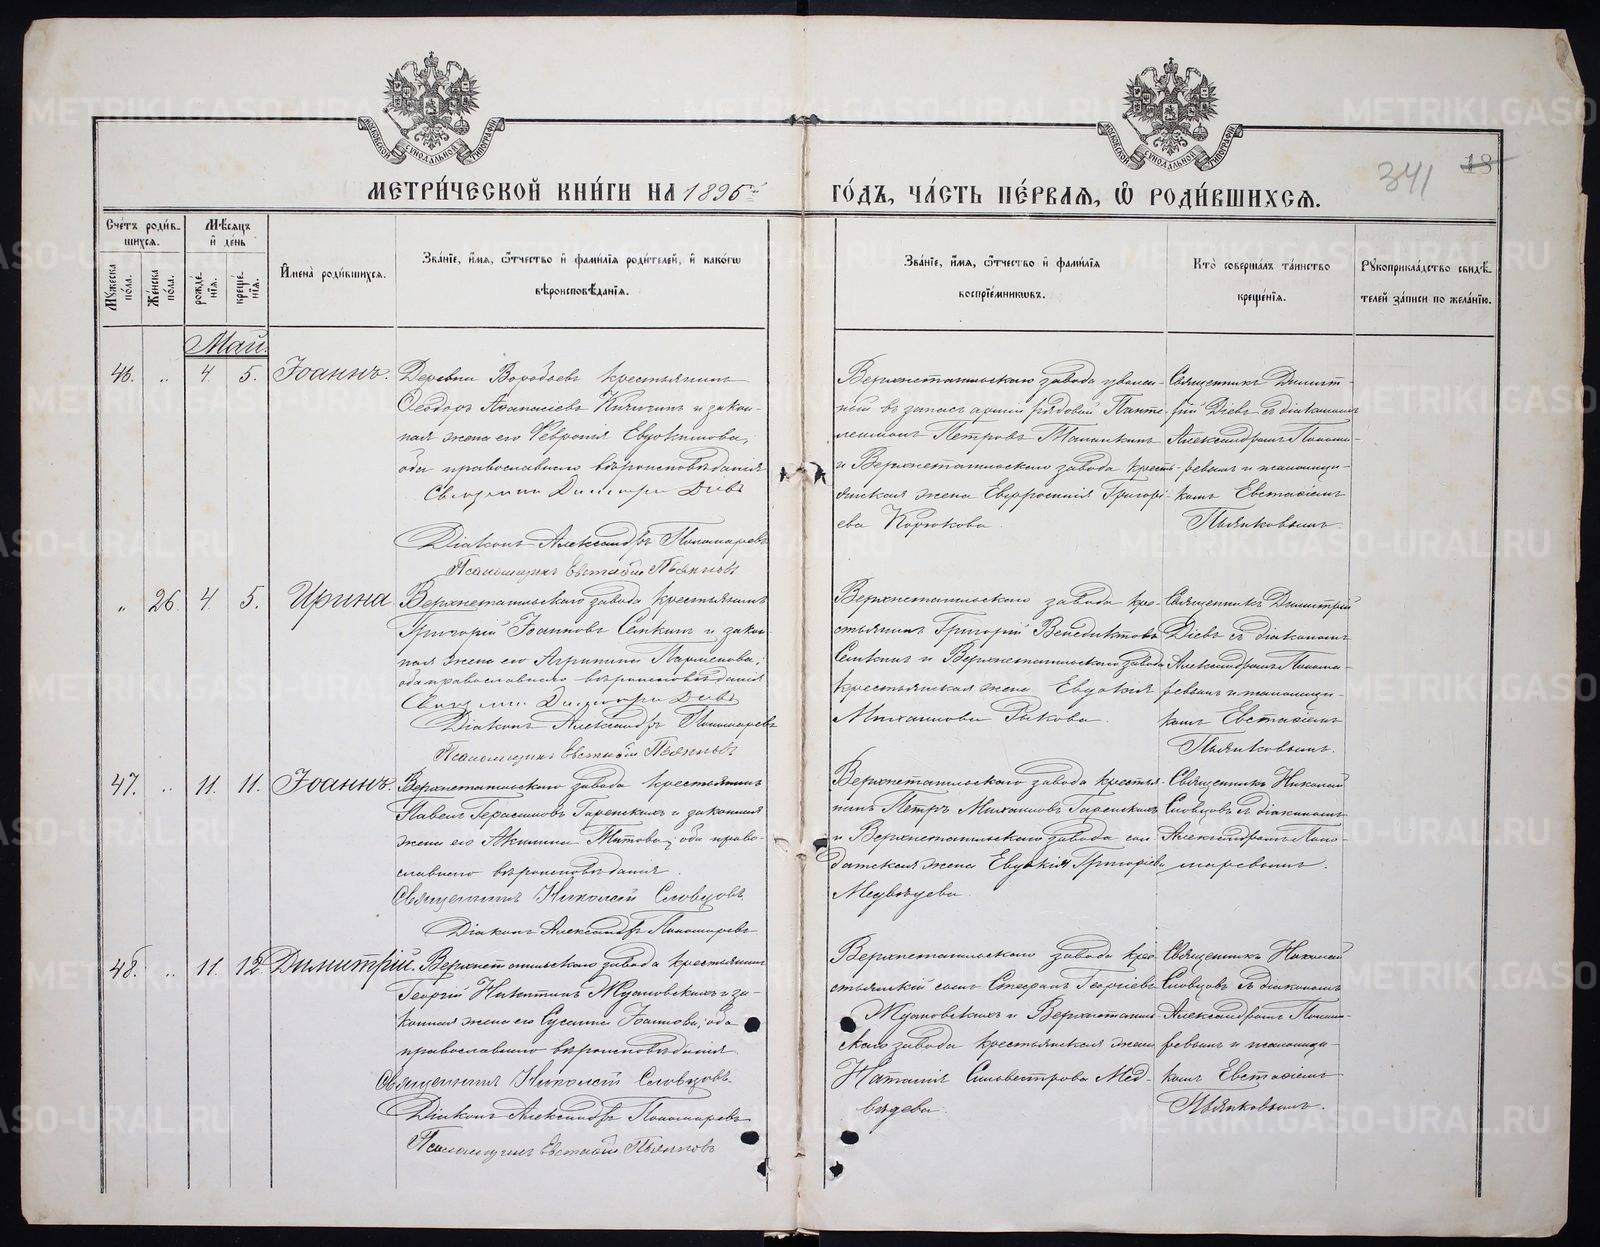 МЕТРИ́ЧЕСКОЙ КНИ́ГИ НА 1896й ГО́ДЪ, ЧА́СТЬ ПЕ́РВАЯ, Ѡ҆ РОДИ́ВШИХСЯ.
341 13
Сче́тъ роди́в-
шихся.
Мꙋ́жеска по́ла.
Же́нска по́ла.
Мѣ́сяцъ
и҆ де́нь
рожде́нїя.
креще́нїя.
И҆мена̀ роди́вшихся.
Зва́нїе, и҆́мя, ѻ҆́тчество и҆ фами́лїя роди́телей, и҆ како́гѡ
вѣроисповѣ́данїя.
Зва́нїе, и҆́мя, ѻ҆́тчество и҆ фами́лїя
воспрїе́мникѡвъ.
Кто̀ соверша́лъ та́инство
креще́нїя.
Рꙋкоприкла́дство свидѣ́-
телей за́писи по жела́нїю.
Май.
46. „ 4. 5. Іоаннъ.
Деревни Воробьевъ крестьянинъ
Ѳеодоръ Аѳанасіевъ Кичигинъ и закон-
ная жена его Февронія Евдокимова,
оба православнаго вѣроисповѣданія
Священникъ Димитрій Діевъ
Діаконъ Александръ Пономаревъ
Псаломщикъ Евстаѳій Пьянковъ
Верхнетагильскаго завода уволен-
ный въ запасъ арміи рядовой Панте-
леимонъ Петровъ
и Верхнетагильскаго завода кресть-
янская жена Евфросинія Григорі-
ева Корюкова.
Священникъ Димит-
рій Діевъ съ діакономъ
Александромъ Понома-
ревымъ и псаломщи-
комъ Евстаѳіемъ
Пьянковымъ.
„ 26 4. 5. Ирина
Верхнетагильскаго завода крестьянинъ
Григорій Іоанновъ Семкинъ и закон-
ная жена его Агрипина Парменова;
оба православнаго вѣроисповѣданія
Священникъ Димитрій Діевъ
Діаконъ Александръ Пономаревъ
Псаломщикъ Евстаѳій Пьянковъ
Верхнетагильскаго завода кре-
стьянинъ Григорій Венедиктовъ
Семкинъ и Верхнетагильскаго завода
крестьянская жена Евдокія
Михаилова Рыкова.
Священникъ Димитрій
Діевъ съ діакономъ
Александромъ Понома-
ревымъ и псаломщи-
комъ Евстаѳіемъ
Пьянковымъ.
47. „ 11. 11. Іоаннъ.
Верхнетагильскаго завода крестьянинъ
Павелъ Герасимовъ Гаренскихъ и законная
жена его Акилина Титова, оба право-
славнаго вѣроисповѣданія.
Священникъ Николай Словцовъ
Діаконъ Александръ Пономаревъ
Верхнетагильскаго завода крестья-
нинъ Петръ Михаиловъ Гаренскихъ
и Верхнетагильскаго завода сол-
датская жена Евдокія Григоріева
Медвѣдева.
Священникъ Николай
Словцовъ съ діакономъ
Александромъ Поно-
маревымъ.
48. „ 11. 12 Димитрій.
Верхнетагильскаго завода крестьянинъ
Георгій Никитинъ Ждановскихъ и за-
конная жена его Сусанна Іоаннова, оба
православнаго вѣроисповѣданія.
Священникъ Николай Словцовъ.
Діаконъ Александръ Пономаревъ
Псаломщикъ Евстаѳій Пьянковъ
Верхнетагильскаго завода кре-
стьянскій сынъ Стефанъ Георгіевъ
Ждановскихъ и Верхнетагиль-
скаго завода крестьянская жена
Наталія Сильвестрова Мед-
вѣдева.
Священникъ Николай
Словцовъ съ діакономъ
Александромъ Понома-
ревымъ и псаломщи-
комъ Евстаѳіемъ
Пьянковымъ.